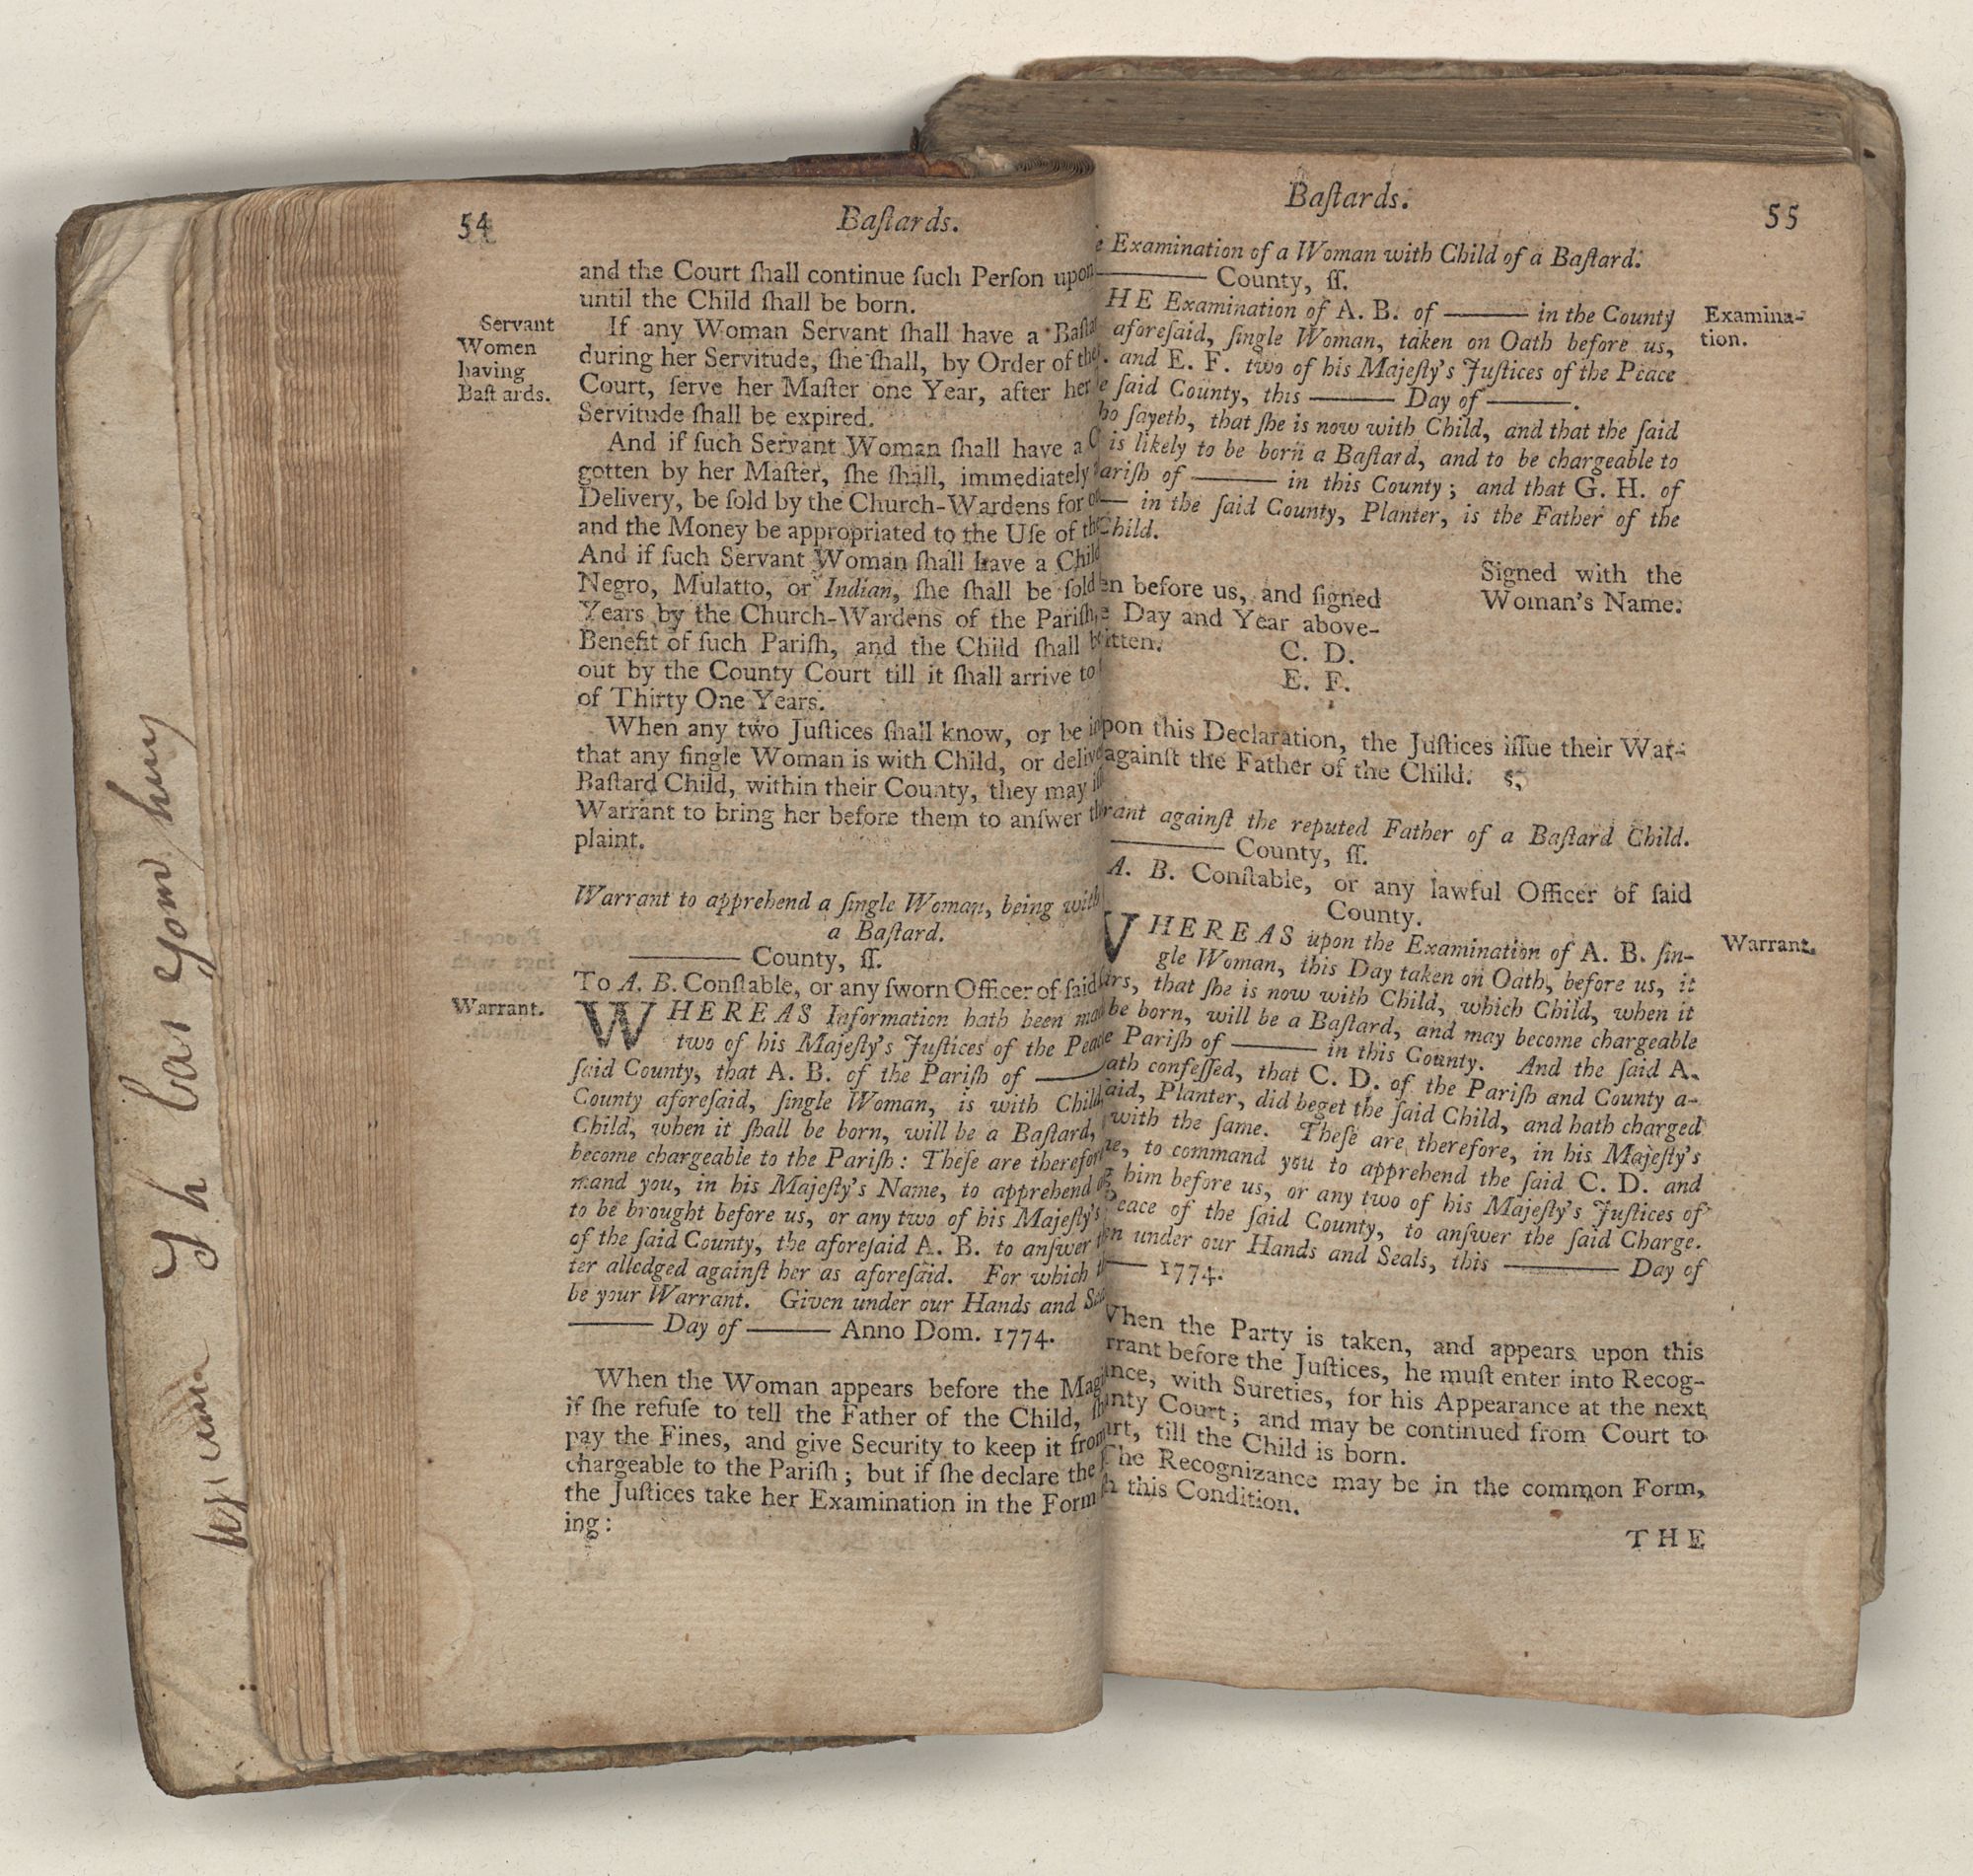 54
Baſtards.
and the Court ſhall continue ſuch Perſon upon
until the Child ſhall be born.
Servant
Women
having
Baſt ards.
If any Woman Servant ſhall have a Baſta
during her Servitude, ſhe ſhall, by Order of the
Court, ſerve her Maſter one Year, after her
Servitude ſhall be expired.
And if ſuch Servant Woman ſhall have a C
gotten by her Maſter, ſhe ſhall, immediately
Delivery, be ſold by the Church-Wardens for
and the Money be appropriated to the Uſe of the
And if ſuch Servant Woman ſhall have a Child
Negro, Mulatto, or Indian, ſhe ſhall be ſold
Years by the Church-Wardens of the Pariſh,
Benefit of ſuch Pariſh, and the Child ſhall b
out by the County Court till it ſhall arrive to
of Thirty One Years.
When any two Juſtices ſhall know, or be in
that any ſingle Woman is with Child, or delive
Baſtard Child, within their County, they may iſſ
Warrant to bring her before them to anſwer th
plaint.
Warrant to apprehend a ſingle Woman, being with
a Baſtard.
——— County, ſſ.
To A. B. Conſtable, or any ſworn Officer of ſaid
Warrant.
WHEREAS Information hath been mad
two of his Majeſty's Juſtices of the Peac
ſaid County, that A. B. of the Pariſh of ———
County aforeſaid, ſingle Woman, is with Child,
Child, when it ſhall be born, will be a Baſtard,
become chargeable to the Pariſh: Theſe are therefore
mand you, in his Majeſty's Name, to apprehend
to be brought before us, or any two of his Majeſty's
of the ſaid County, the aforeſaid A. B. to anſwer
ter alledged againſt her as aforeſaid. For which
be your Warrant. Given under our Hands and Sea
——— Day of ——— Anno Dom. 1774.
When the Woman appears before the Magi
if ſhe refuſe to tell the Father of the Child, ſh
pay the Fines, and give Security to keep it from
chargeable to the Pariſh; but if ſhe declare the
the Juſtices take her Examination in the Form
ing:
Baſtards.
55
e Examination of a Woman with Child of a Baſtard.
——— County, ſſ.
HE Examination of A. B. of ——— in the County
Examina-
tion.
aforeſaid, ſingle Woman, taken on Oath before us,
. and E. F. two of his Majeſty's Juſtices of the Peace
e ſaid County, this ——— Day of ———.
ho ſayeth, that ſhe is now with Child, and that the ſaid
is likely to be born a Baſtard, and to be chargeable to
ariſh of ——— in this County; and that G. H. of
— in the ſaid County, Planter, is the Father of the
Child.
Signed with the
Woman's Name.
en before us, and ſigned
e Day and Year above-
itten.
C. D.
E. F.
pon this Declaration, the Juſtices iſſue their War-
againſt the Father of the Child.
rant againſt the reputed Father of a Baſtard Child.
——— County, ſſ.
A. B. Conſtable, or any lawful Officer of ſaid
County.
VHEREAS upon the Examination of A. B. ſin-
Warrant.
gle Woman, this Day taken on Oath, before us, it
ars, that ſhe is now with Child, which Child, when it
be born, will be a Baſtard, and may become chargeable
e Pariſh of ——— in this County. And the ſaid A.
ath confeſſed, that C. D. of the Pariſh and County a-
ſaid, Planter, did beget the ſaid Child, and hath charged
with the ſame. Theſe are, therefore, in his Majeſty's
e, to command you to apprehend the ſaid C. D. and
g him before us, or any two of his Majeſty's Juſtices of
Peace of the ſaid County, to anſwer the ſaid Charge.
n under our Hands and Seals, this ——— Day of
— 1774.
When the Party is taken, and appears upon this
rrant before the Juſtices, he muſt enter into Recog-
nce, with Sureties, for his Appearance at the next
nty Court; and may be continued from Court to
urt, till the Child is born.
The Recognizance may be in the common Form,
h this Condition.
THE